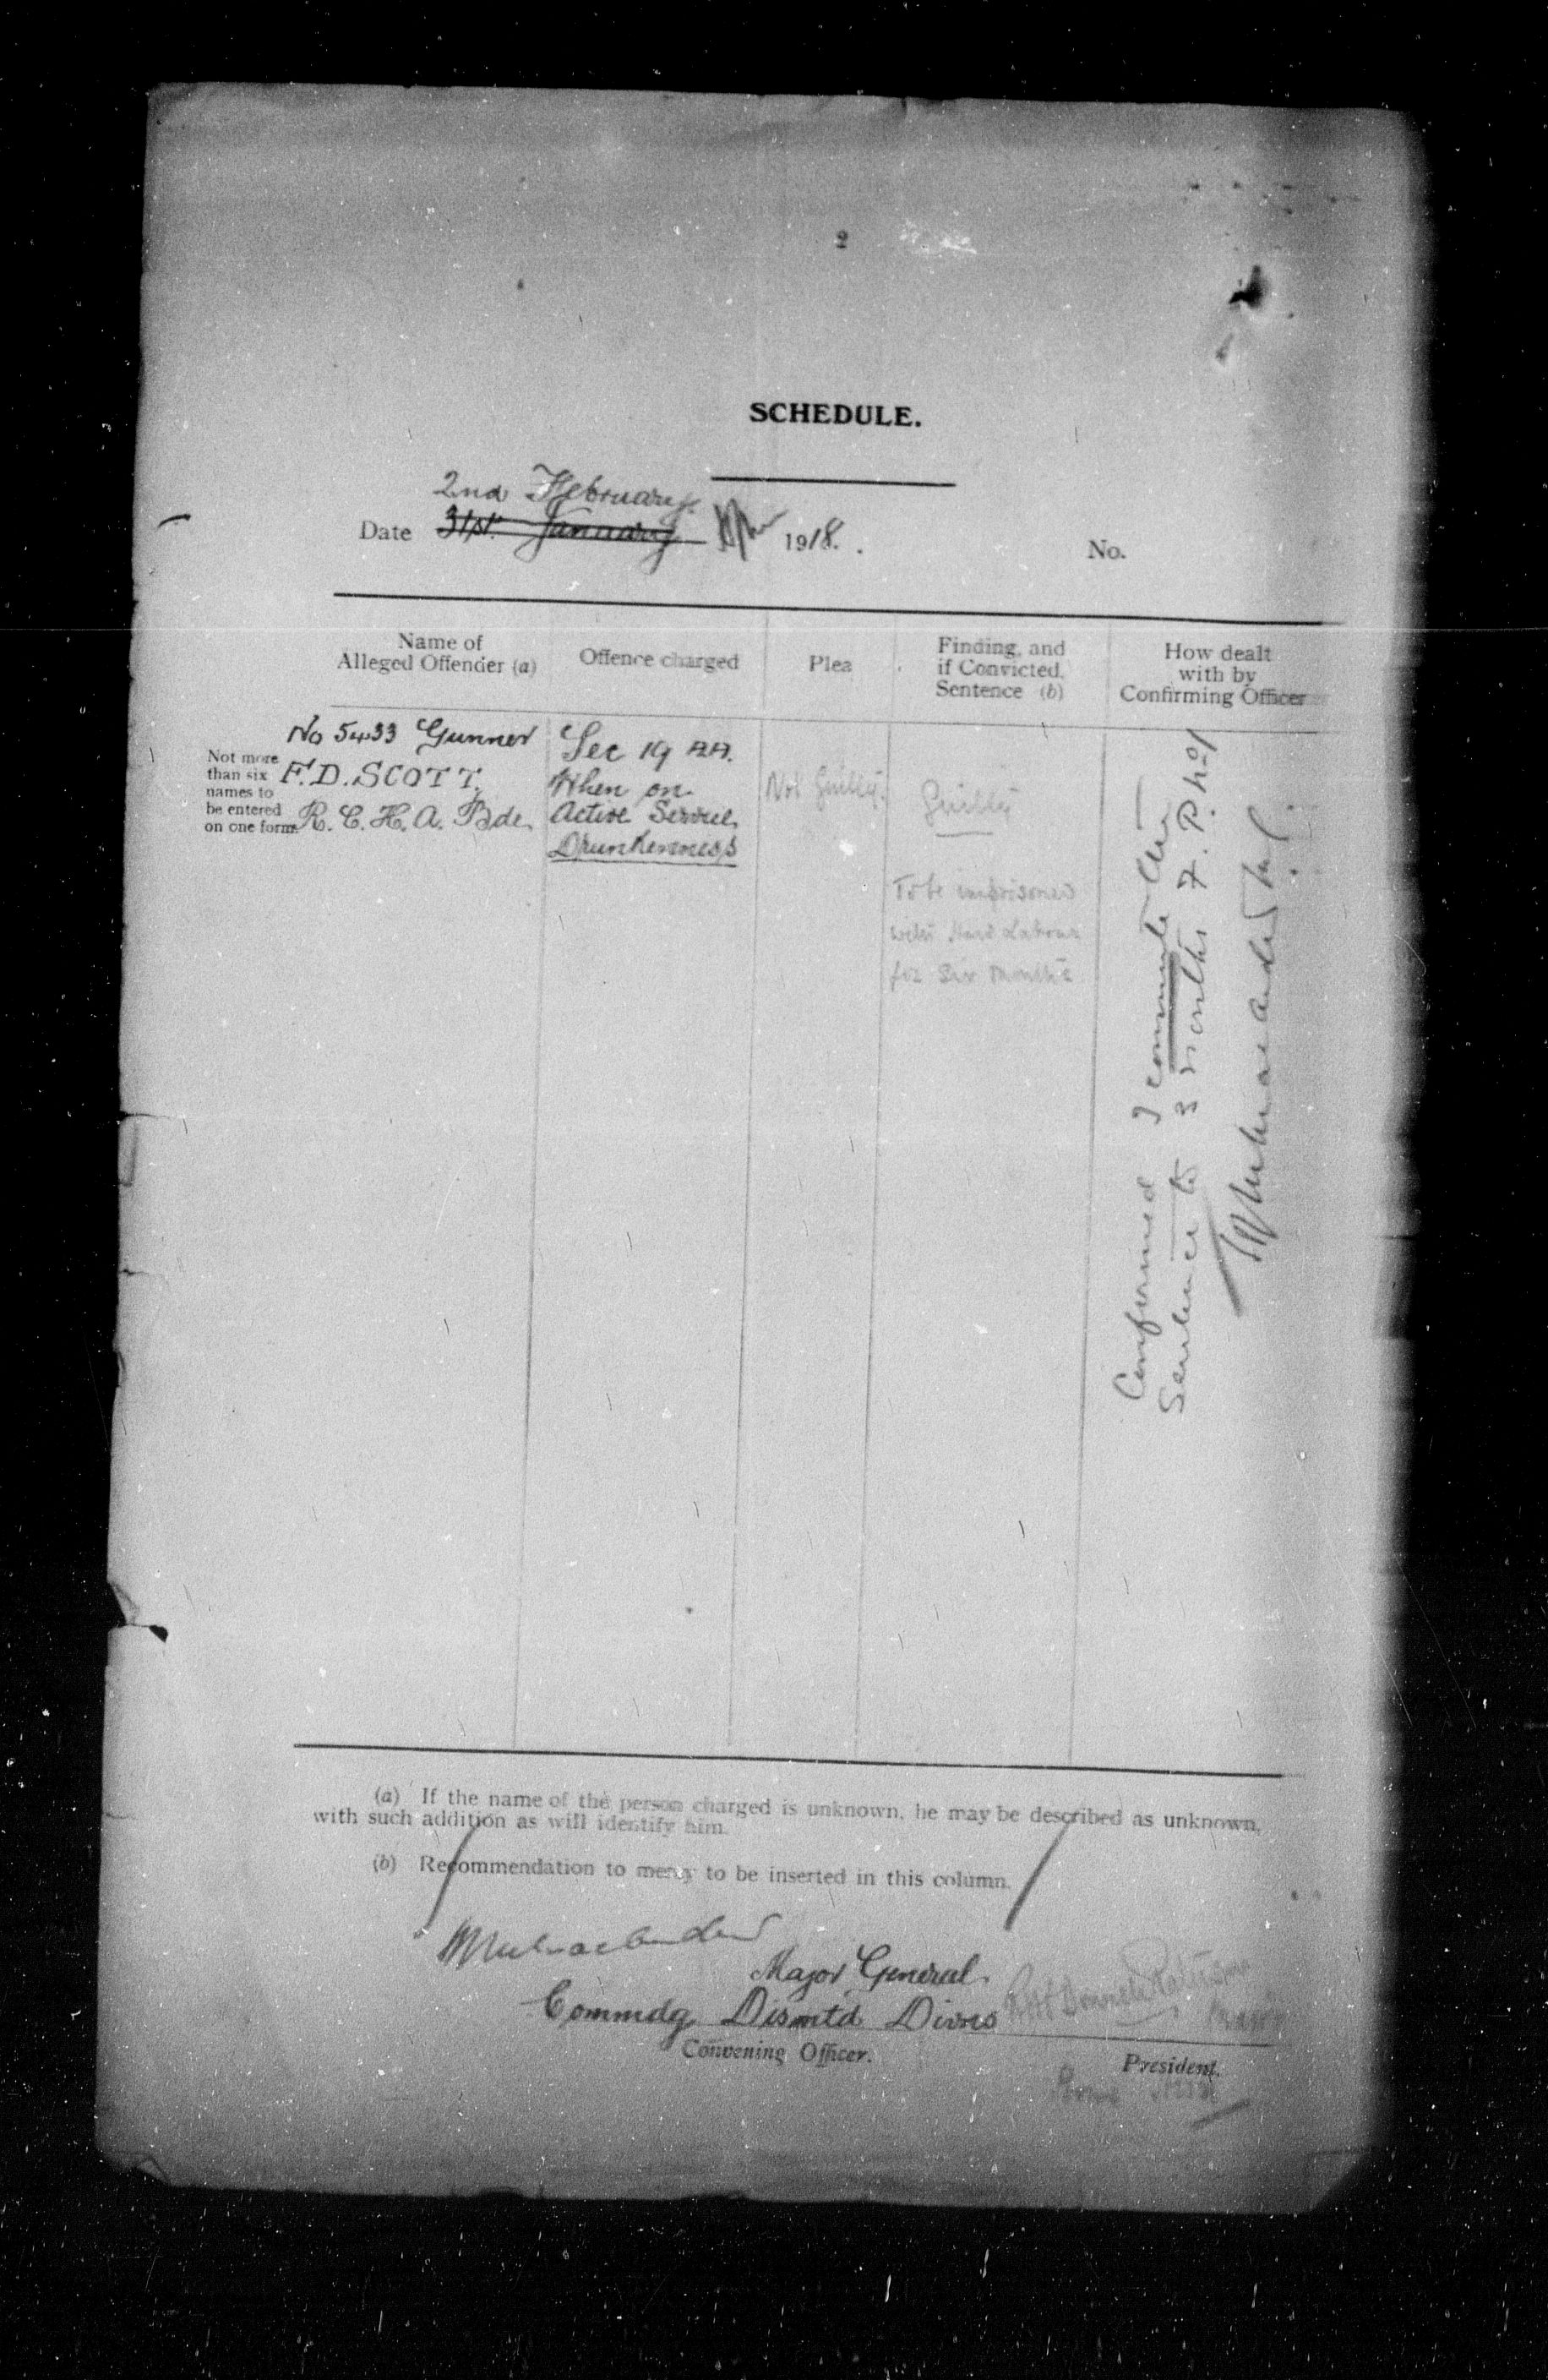 2
SCHEDULE.
2nd February
Date 31st January 1918.
No.
Name of
Alleged Offender (a)
Offence charged
Plea
Finding, and
if Convicted,
Sentence (b)
How dealt
with by
Confirming Officer
Not more
than six
names to
be entered
on one form
No 5433 Gunner
F. D. SCOTT.
R. C. H. A. Bde.
Sec 19 AA.
When on
Active Service
Drunkenness
Not Guilty.
Guilty
To be imprisoned
with Hard Labour
for Six Months
Confirmed I commute the
Sentence to 3 months F. P. No 1
(a) If the name of the person charged is unknown, he may be described as unknown,
with such addition as will identify him.
(b) Recommendation to mercy to be inserted in this column.
Major General
Commdg Dismtd Divns
Convening Officer.
President.